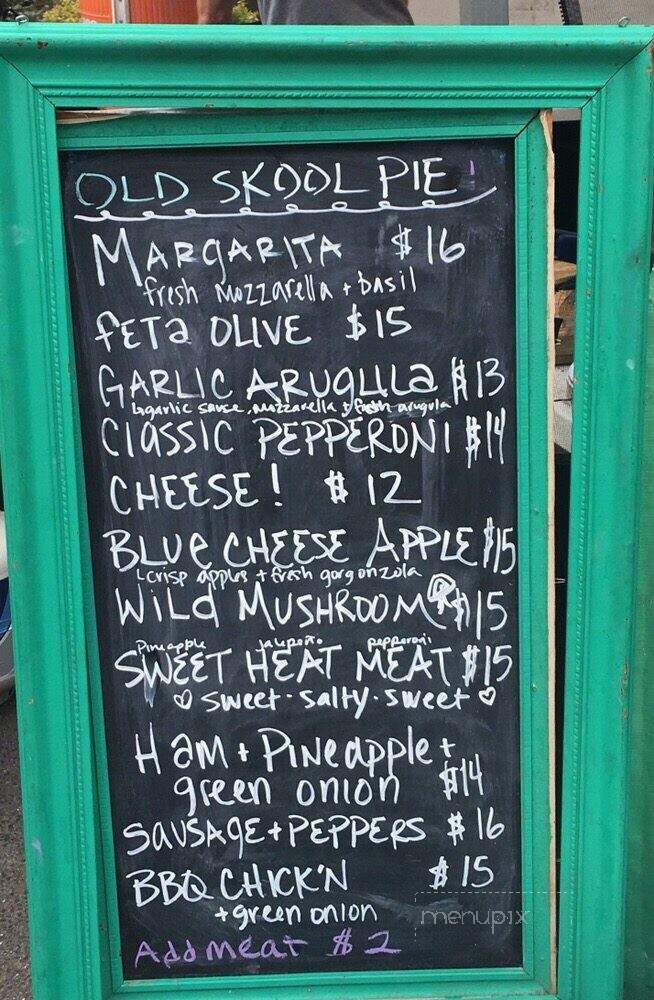 OLD SKOOL PIE!
MARGARITA $16
fresh mozzarella + basil
feta OLIVE $15
GARLIC ARUGULa $13
garlic sauce, mozzarella + fresh arugula
CLASSIC PEPPERONI $14
CHEESE! $12
BLUE CHEESE APPLE $15
crisp apples + fresh gorgonzola
WILD MUSHROOM $15
Pineapple jalapeño pepperoni
SWEET HEAT MEAT $15
♡ sweet · salty · sweet ♡
Ham + Pineapple +
green onion $14
SAUSAGE + PEPPERS $16
BBQ CHICK'N $15
+ green onion
menupix
Add meat $2